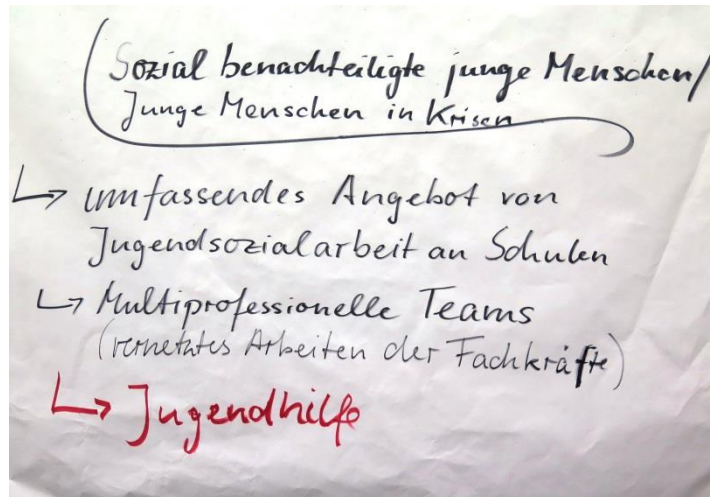 Sozial benachteiligte junge Menschen/
Junge Menschen in Krisen
↳ umfassendes Angebot von
Jugendsozialarbeit an Schulen
↳ Multiprofessionelle Teams
(vernetztes Arbeiten der Fachkräfte)
↳ Jugendhilfe